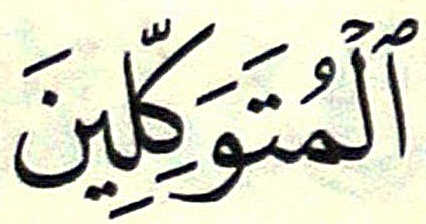 ٱلْمُتَوَكِّلِينَ